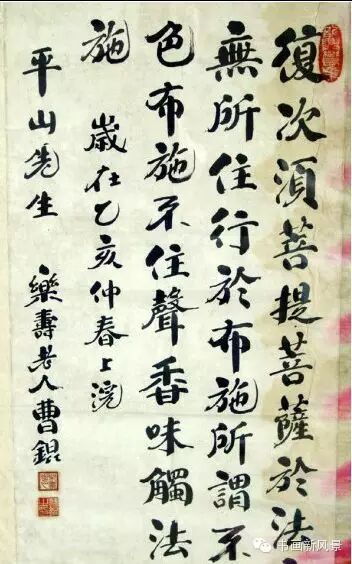 復次須菩提菩薩於法
無所住行於布施所謂不
色布施不住聲香味觸法
施
歲在乙亥仲春上浣
平山先生
樂壽老人曹錕
书画新风景